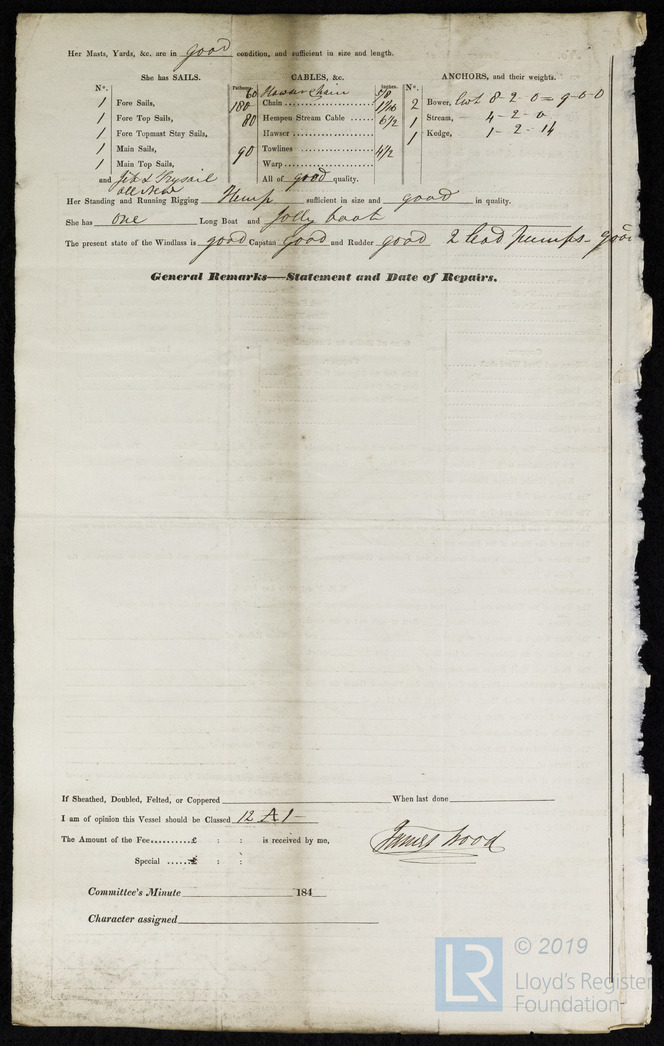 Her Masts, Yards, &c. are in good condition, and sufficient in size and length.
She has SAILS.
CABLES, &c.
ANCHORS, and their weights.
N°.
1 Fore Sails,
1 Fore Top Sails,
1 Fore Topmast Stay Sails,
1 Main Sails,
1 Main Top Sails,
and Jib & Trysail
all New
Fathoms. Inches.
60 Hawser Chain 5/8
180 Chain 1 1/16
80 Hempen Stream Cable 6 1/2
Hawser
90 Towlines 4 1/2
Warp
All of good quality.
N°.
2 Bower, Cwt 8-2-0 = 9-0-0
1 Stream, - 4-2-0
1 Kedge, 1-2-14
Her Standing and Running Rigging Hemp sufficient in size and good in quality.
She has One Long Boat and Jolly boat
The present state of the Windlass is good Capstan good and Rudder good 2 lead pumps - good
General Remarks—Statement and Date of Repairs.
If Sheathed, Doubled, Felted, or Coppered When last done
I am of opinion this Vessel should be Classed 12 A 1 -
The Amount of the Fee..........£ : : is received by me,
James Wood
Special ......£ : :
Committee's Minute 184
Character assigned
LR © 2019
Lloyd's Register
Foundation